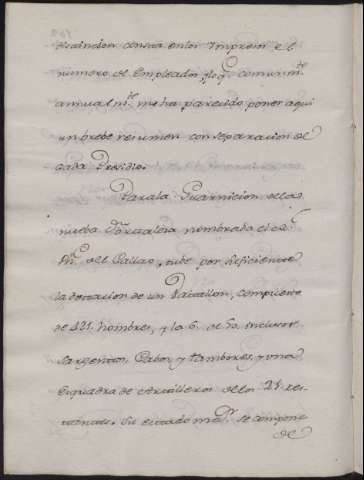 numero de Empleados, y q.e comunm.te
anualm.te me ha parecido poner aqui
un brebe resumen con separacion de
cada Presidio.
Para la Guarnicion de la
nueba Fortaleza nombrada el R.l
Ph.e del Callao, tube por suficiente
la dotacion de un Batallon, compuesto
de 421. hombres, y los 6. de inclusos
Sargentos, Cabos, y tambores, y una
Esquadra de Artilleros de los 21. res-
tantes. Su estado mayor se compone
de